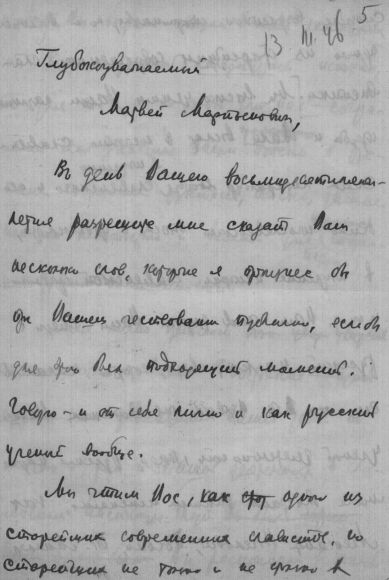 5
13 III.46
Глубокоуважаемый
Матвей Мартынович,
Въ день Вашего восьмидесятипяти-
летия разрешите мне сказать Вам
несколько слов, которые я произнес бы
при Вашем чествовании публично, если бы
для был подходящий момент.
Говорю – и от себя лично и как русский
ученый вообще.
Мы чтим Вас, как одного из
старейших современных славистов, но
старейших не только и не столько в